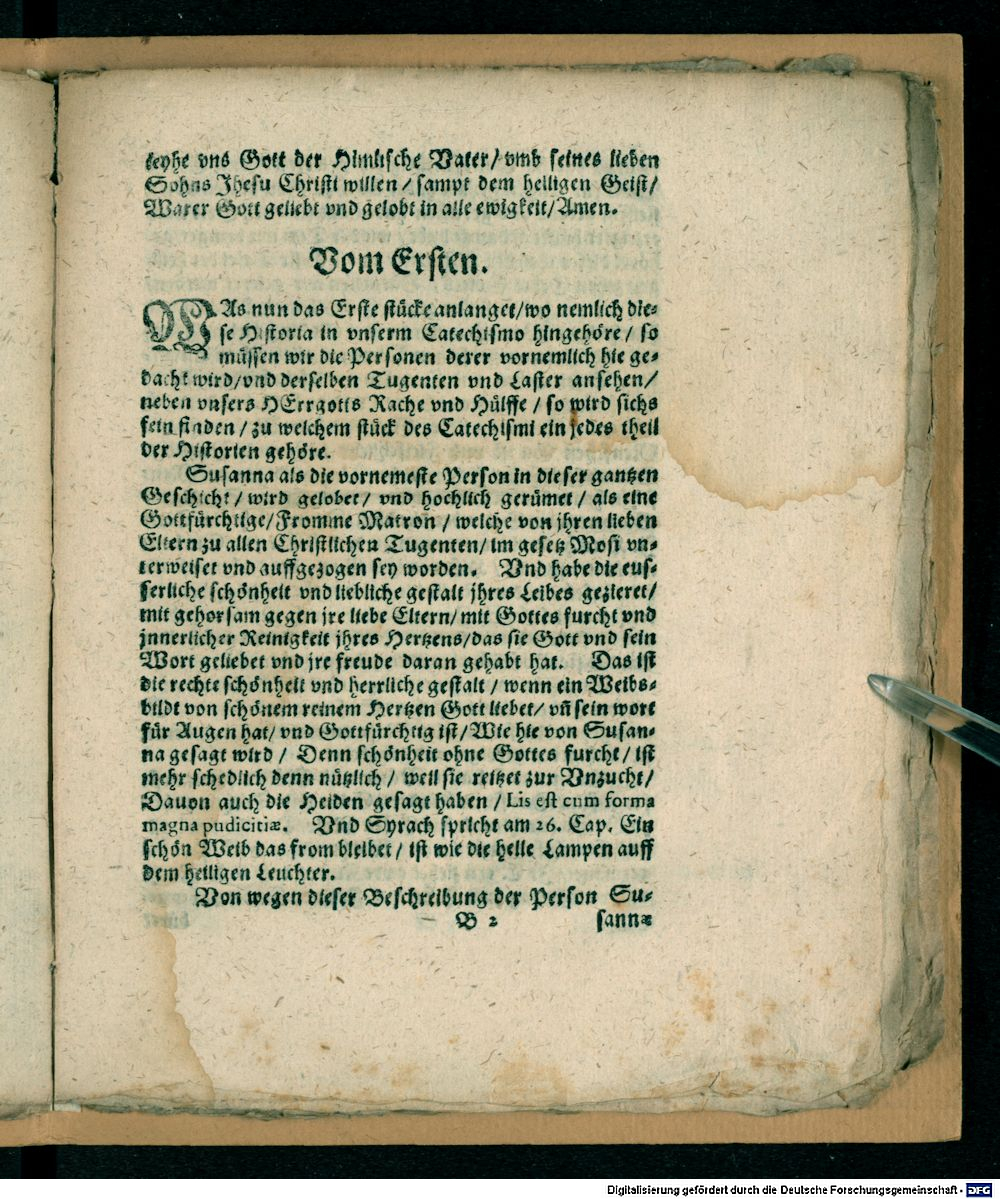 leyhe vns Gott der Himlische Vater/ vmb seines lieben
Sohns Jhesu Christi willen / sampt dem heiligen Geist/
Warer Gott geliebt vnd gelobt in alle ewigkeit/ Amen.
Vom Ersten.
WAs nun das Erste stücke anlanget/wo nemlich die-
se Historia in vnserm Catechismo hingehöre / so
müssen wir die Personen derer vornemlich hie ge-
dacht wird/vnd derselben Tugenten vnd Laster ansehen/
neben vnsers HErrgotts Rache vnd Hülffe / so wird sichs
fein finden / zu welchem stück des Catechismi ein jedes theil
der Historien gehöre.
Susanna als die vornemeste Person in dieser gantzen
Geschicht / wird gelobet/ vnd hochlich gerümet / als eine
Gottfürchtige/Fromme Matron / welche von jhren lieben
Eltern zu allen Christlichen Tugenten/ im gesetz Mosi vn-
terweiset vnd auffgezogen sey worden. Vnd habe die eus-
serliche schönheit vnd liebliche gestalt jhres Leibes gezieret/
mit gehorsam gegen jre liebe Eltern/ mit Gottes furcht vnd
jnnerlicher Reinigkeit jhres Hertzens/das sie Gott vnd sein
Wort geliebet vnd jre freude daran gehabt hat. Das ist
die rechte schönheit vnd herrliche gestalt / wenn ein Weibs-
bildt von schönem reinem Hertzen Gott liebet/ vñ sein wort
für Augen hat/ vnd Gottfürchtig ist/ Wie hie von Susan-
na gesagt wird / Denn schönheit ohne Gottes furcht/ ist
mehr schedlich denn nützlich / weil sie reitzet zur Vnzucht/
Dauon auch die Heiden gesagt haben / Lis est cum forma
magna pudicitiæ. Vnd Syrach spricht am 26. Cap. Ein
schön Weib das from bleibet/ ist wie die helle Lampen auff
dem heiligen Leuchter.
Von wegen dieser Beschreibung der Person Su-
B 2 sannæ
Digitalisierung gefördert durch die Deutsche Forschungsgemeinschaft - DFG